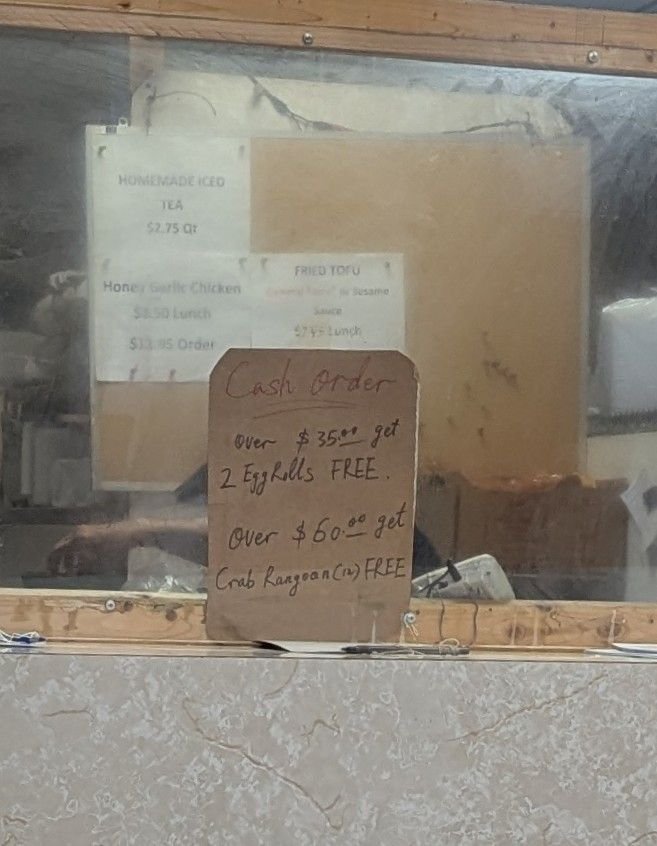 HOMEMADE ICED
TEA
$2.75 Qt
Honey Garlic Chicken
$8.50 Lunch
$13.95 Order
FRIED TOFU
General Tso's or Sesame
Sauce
$7.95 Lunch
Cash Order
Over $35.00 get
2 Egg Rolls FREE.
Over $60.00 get
Crab Rangoon (12) FREE